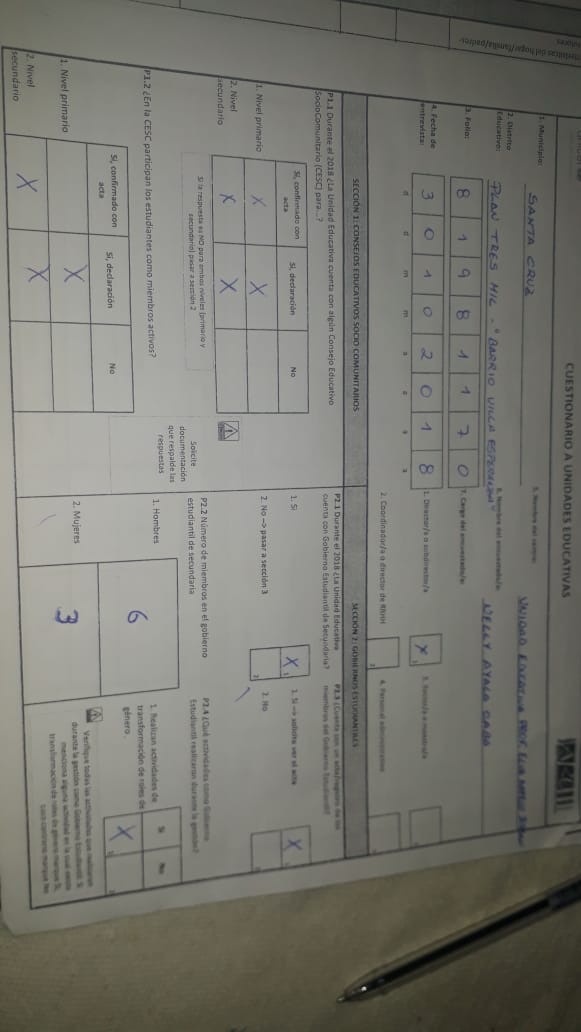 CUESTIONARIO A UNIDADES EDUCATIVAS
1. Municipio: SANTA CRUZ
2. Distrito Educativo: PLAN TRES MIL - "BARRIO VILLA ESPERANZA"
3. Folio: 8 1 9 8 1 1 7 0
4. Fecha de entrevista: 3 0 1 0 2 0 1 8
d d m m a a a a
UNIDAD EDUCATIVA PROF.
6. Nombre del encuestado/a: NELLY AYALA
7. Cargo del encuestado/a:
1. Director/a o subdirector/a X 1
2. Coordinador/a o director de RRHH 2
3. Maestro/a
4. Personal administrativo
SECCIÓN 1: CONSEJOS EDUCATIVOS SOCIO COMUNITARIOS
P1.1 Durante el 2018 ¿La Unidad Educativa cuenta con algún Consejo Educativo
SocioComunitario (CESC) para...?
Si, confirmado con acta
Si, declaración
No
1. Nivel primario X X
2. Nivel secundario X X
Si la respuesta es NO para ambos niveles (primario y
secundario) pasar a sección 2
Solicite
documentación
que respalde las
respuestas
P1.2 ¿En la CESC participan los estudiantes como miembros activos?
Si, confirmado con acta
Si, declaración
No
1. Nivel primario X
2. Nivel secundario X X
SECCIÓN 2: GOBIERNOS ESTUDIANTILES
P2.1 Durante el 2018 ¿La Unidad Educativa
cuenta con Gobierno Estudiantil de Secundaria?
1. Si X 1
2. No --> pasar a sección 3 2
P2.2 Número de miembros en el gobierno
estudiantil de secundaria
1. Hombres 6
2. Mujeres 3
miembros del Gobierno Estudiantil?
1. Si --> solicite ver el acta X 1
2. No
¿Qué actividades como Gobierno
Estudiantil realizaron durante la gestión?
Si No
1. Realizan actividades de
transformación de roles de
género. X
Verifique todas las actividades que realizaron
durante la gestión como Gobierno Estudiantil. Si
menciona alguna actividad en la cual exista
transformación de roles de género marque Si,
caso contrario marque No